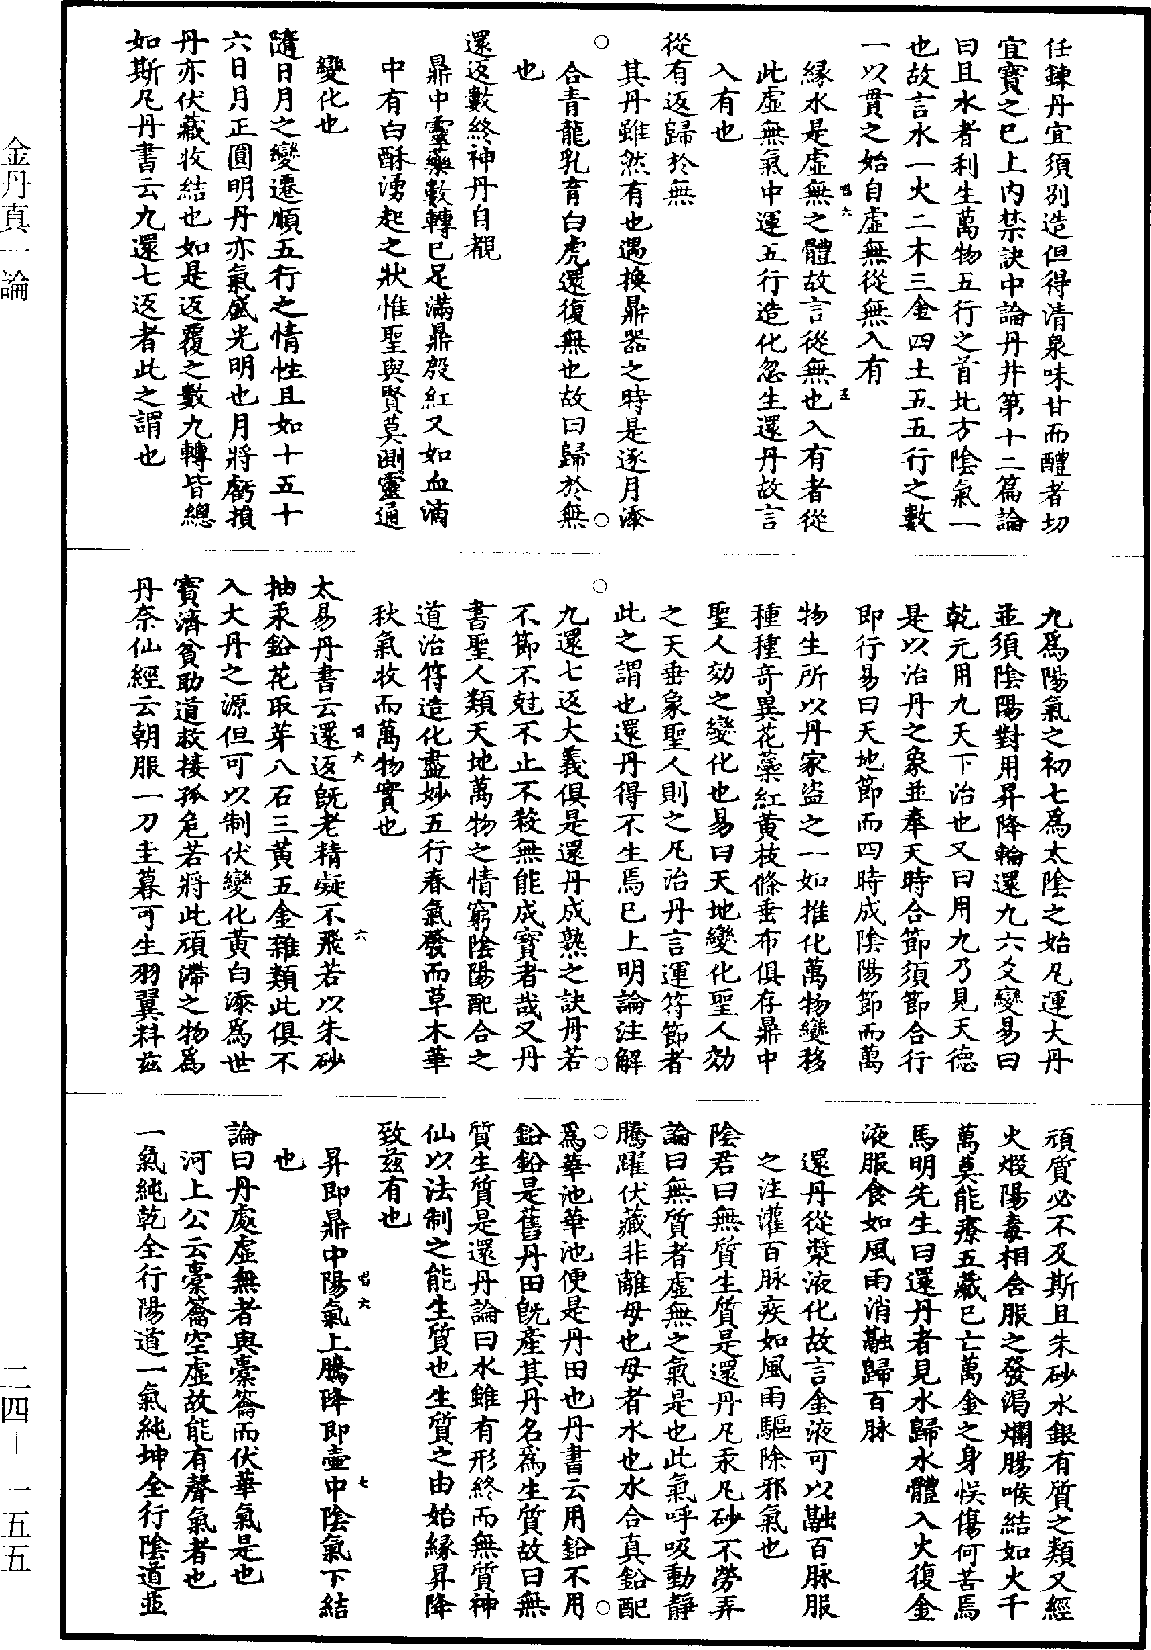 任鍊丹宜須別造但得清泉味甘而醴者切
宜寶之已上內禁訣中論丹井第十二篇論
曰且水者利生萬物五行之首北方陰氣一
也故言水一火二木三金四土五五行之數
一以貫之始自虛無從無入有
緣水是虛無之體故言從無也入有者從
此虛無氣中運五行造化忽生還丹故言
入有也
從有返歸於無
其丹雖然有也遇換鼎器之時是逐月添
合青龍乳育白虎還復無也故曰歸於無
也
還返數終神丹自覩
鼎中靈藥數轉已足滿鼎殷紅又如血滴
中有白酥湧起之狀惟聖與賢莫測靈通
變化也
隨日月之變遷順五行之情性且如十五十
六日月正圓明丹亦氣盛光明也月將虧損
丹亦伏藏收結也如是返覆之數九轉皆總
如斯凡丹書云九還七返者此之謂也
九爲陽氣之初七爲太陰之始凡運大丹
並須陰陽對用昇降輪還九六爻變易曰
乾元用九天下治也又曰用九乃見天德
是以治丹之象並奉天時合節須節合行
即行易曰天地節而四時成陰陽節而萬
物生所以丹家盜之一如推化萬物變移
種種奇異花藥紅黃枝條垂布俱存鼎中
聖人効之變化也易曰天地變化聖人効
之天垂象聖人則之凡治丹言運符節者
此之謂也還丹得不生焉已上明論注解
九還七返大義俱是還丹成熟之訣丹若
不節不尅不止不殺無能成寶者哉又丹
書聖人類天地萬物之情窮陰陽配合之
道治符造化盡妙五行春氣發而草木華
秋氣收而萬物實也
太易丹書云還返旣老精凝不飛若以朱砂
抽汞鉛花取芽八石三黃五金雜類此俱不
入大丹之源但可以制伏變化黃白添爲世
寶濟貧助道救接孤危若將此頑滯之物爲
丹柰仙經云朝服一刀圭暮可生羽翼料茲
頑質必不及斯且朱砂水銀有質之類又經
火煅陽毒相含服之發渴爛腸喉結如火千
萬莫能療五藏已亡萬金之身悞傷何苦焉
馬明先生曰還丹者見水歸水體入火復金
液服食如風雨消融歸百脉
還丹從漿液化故言金液可以融百脉服
之注灌百脉疾如風雨驅除邪氣也
陰君曰無質生質是還丹凡汞凡砂不勞弄
論曰無質者虛無之氣是也此氣呼吸動靜
騰躍伏藏非離母也母者水也水合真鉛配
爲華池華池便是丹田也丹書云用鉛不用
鉛鉛是舊丹田旣產其丹名爲生質故曰無
質生質是還丹論曰水雖有形終而無質神
仙以法制之能生質也生質之由始緣昇降
致茲有也
昇即鼎中陽氣上騰降即壺中陰氣下結
也
論曰丹處虛無者與橐籥而伏華氣是也
河上公云橐籥空虛故能有聲氣者也
一氣純乾全行陽道一氣純坤全行陰道並
甞六
五
甞六
六
甞六
七
金丹真一論
二四－一五五